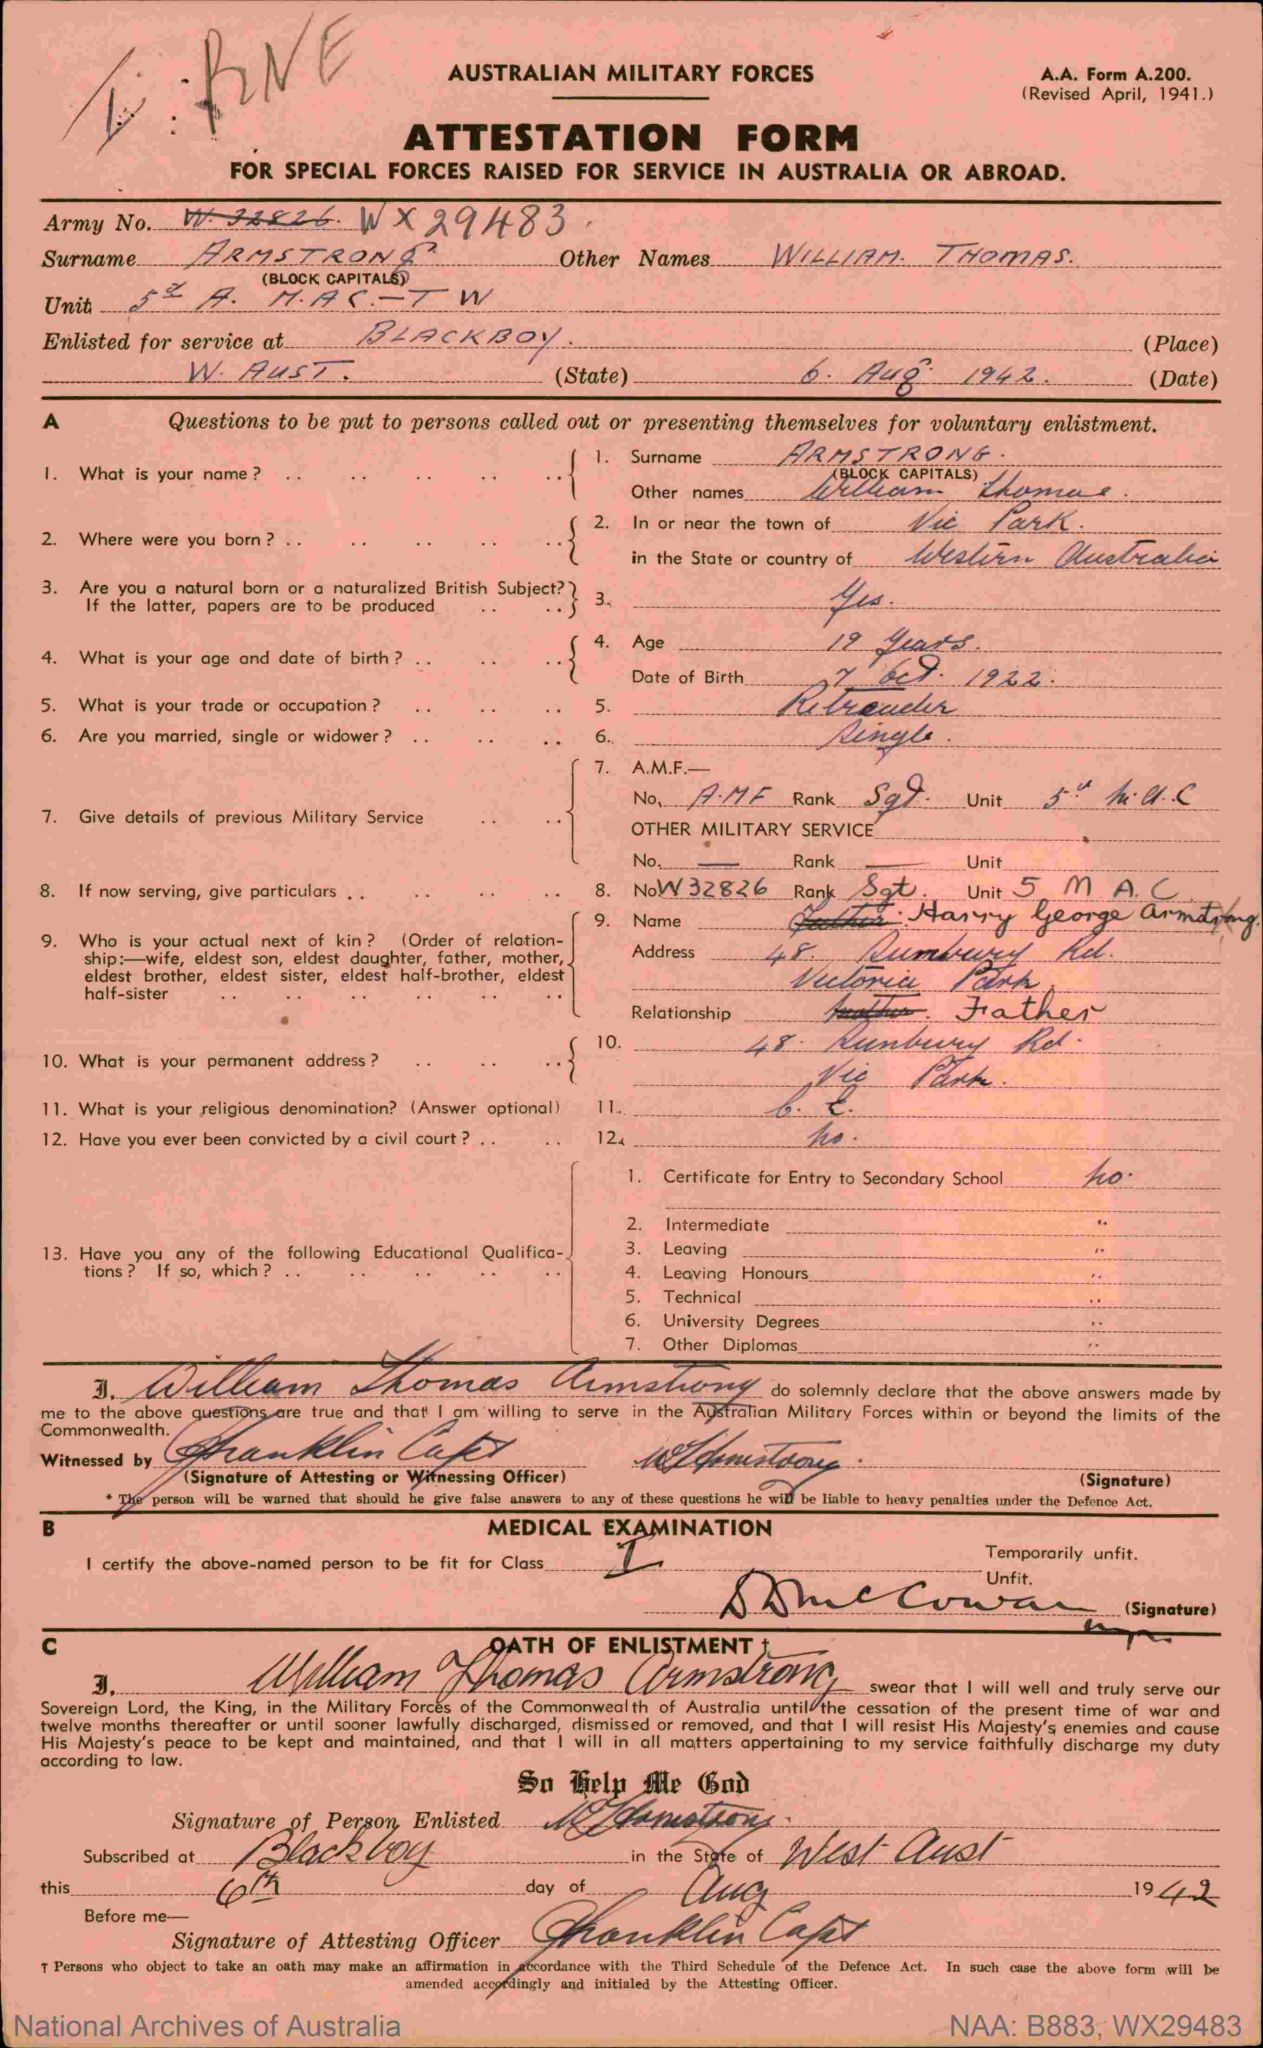 BNE
AUSTRALIAN MILITARY FORCES
A.A. Form A.200.
(Revised April, 1941.)
ATTESTATION FORM
FOR SPECIAL FORCES RAISED FOR SERVICE IN AUSTRALIA OR ABROAD.
Army No. W. 32826. WX29483.
Surname ARMSTRONG Other Names WILLIAM. THOMAS.
(BLOCK CAPITALS)
Unit 5th A. M.A.C.-T W
Enlisted for service at BLACKBOY. (Place)
W. AUST. (State) 6. Aug. 1942. (Date)
A Questions to be put to persons called out or presenting themselves for voluntary enlistment.
1. What is your name? .. 1. Surname ARMSTRONG.
(BLOCK CAPITALS)
Other names William Thomas.
2. Where were you born? .. 2. In or near the town of Vic Park.
in the State or country of Western Australia
3. Are you a natural born or a naturalized British Subject?
If the latter, papers are to be produced .. 3. Yes.
4. What is your age and date of birth? .. 4. Age 19 Years.
Date of Birth 7 Oct. 1922.
5. What is your trade or occupation? .. 5. Retreader
6. Are you married, single or widower? .. 6. Single.
7. Give details of previous Military Service .. 7. A.M.F.—
No. A.M.F Rank Sgt. Unit 5th M.A.C
OTHER MILITARY SERVICE
No. — Rank — Unit
8. If now serving, give particulars .. 8. No W32826 Rank Sgt. Unit 5 M A.C.
9. Who is your actual next of kin? (Order of relation-
ship:—wife, eldest son, eldest daughter, father, mother,
eldest brother, eldest sister, eldest half-brother, eldest
half-sister ..
9. Name Father. Harry George Armstrong.
Address 48. Bunbury Rd.
Victoria Park
Relationship Father
10. What is your permanent address? .. 10. 48. Bunbury Rd.
Vic Park.
11. What is your religious denomination? (Answer optional) 11. C. E.
12. Have you ever been convicted by a civil court? .. 12. No.
13. Have you any of the following Educational Qualifica-
tions? If so, which? ..
1. Certificate for Entry to Secondary School No.
2. Intermediate "
3. Leaving "
4. Leaving Honours "
5. Technical "
6. University Degrees "
7. Other Diplomas "
I, William Thomas Armstrong do solemnly declare that the above answers made by
me to the above questions are true and that I am willing to serve in the Australian Military Forces within or beyond the limits of the
Commonwealth.
Witnessed by Franklin Capt WTArmstrong.
(Signature of Attesting or Witnessing Officer) (Signature)
* The person will be warned that should he give false answers to any of these questions he will be liable to heavy penalties under the Defence Act.
B MEDICAL EXAMINATION
I certify the above-named person to be fit for Class I Temporarily unfit.
Unfit.
McCowan (Signature)
C OATH OF ENLISTMENT †
I, William Thomas Armstrong swear that I will well and truly serve our
Sovereign Lord, the King, in the Military Forces of the Commonwealth of Australia until the cessation of the present time of war and
twelve months thereafter or until sooner lawfully discharged, dismissed or removed, and that I will resist His Majesty's enemies and cause
His Majesty's peace to be kept and maintained, and that I will in all matters appertaining to my service faithfully discharge my duty
according to law.
So Help Me God
Signature of Person Enlisted WTArmstrong.
Subscribed at Blackboy in the State of West Aust
this 6th day of Aug 1942
Before me—
Signature of Attesting Officer Franklin Capt
† Persons who object to take an oath may make an affirmation in accordance with the Third Schedule of the Defence Act. In such case the above form will be
amended accordingly and initialed by the Attesting Officer.
National Archives of Australia NAA: B883, WX29483